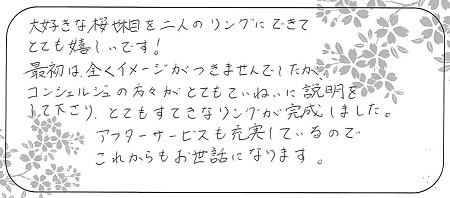 大好きな桜杢目を二人のリングにできて
とても嬉しいです!
最初は、全くイメージがつきませんでしたが、
コンシェルジュの方々がとてもていねいに説明を
して下さり、とてもすてきなリングが完成しました。
アフターサービスも充実しているので
これからもお世話になります。